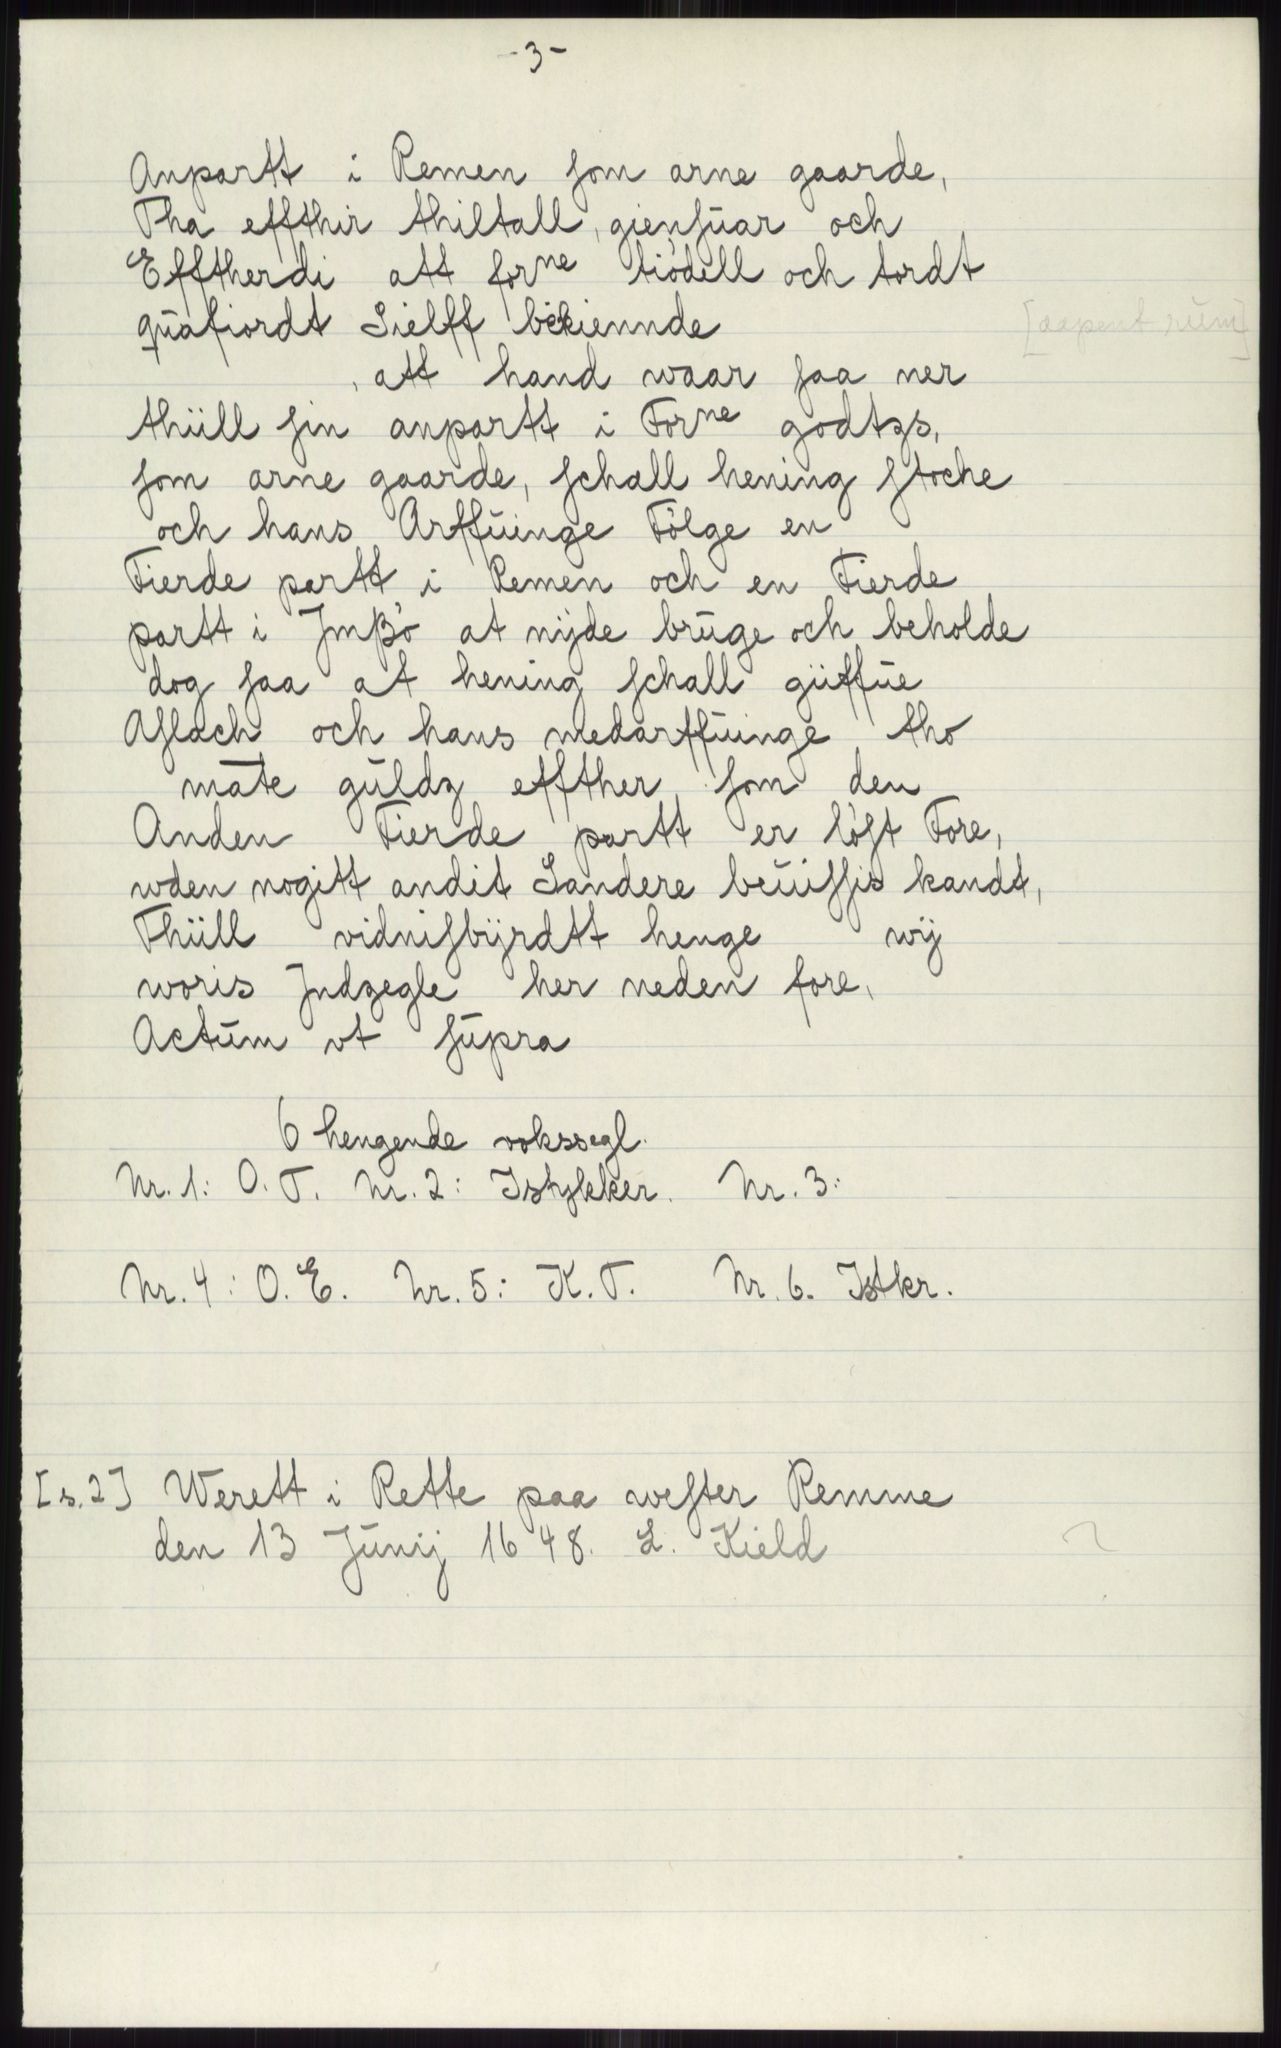 -3-
Anpartt i Remen som arne gaarde,
Tha effthir thiltall, giensuar och
Efftherdi att forne tiødell och tordt
quafiordt Sielff bekiennde [aapent rum]
, att hand waar saa ner
thiill sin anpartt i Forne godtzs,
som arne gaarde, schall hening stoche
och hans Arffuinge Følge en
Fierde partt i Remen och en Fierde
partt i Jmßø at nijde bruge och beholde
dog saa at hening schall giiffue
Aslach och hans medarffuinge tho
mate guldz effther som den
Anden Fierde partt er løst Fore,
wden nogitt andit Sandere beuissis kandt,
Thiill vidnisbijrdtt henge wij
woris Jndzegle her neden fore,
Actum vt supra
6 hengende vokssegl.
Nr. 1: O. T. Nr. 2: Istykker. Nr. 3:
Nr. 4: O. E. Nr. 5: K. T. Nr. 6. Istkr.
[s. 2] Werett i Rette paa wester Remme
den 13 Junij 1648. L. Kield